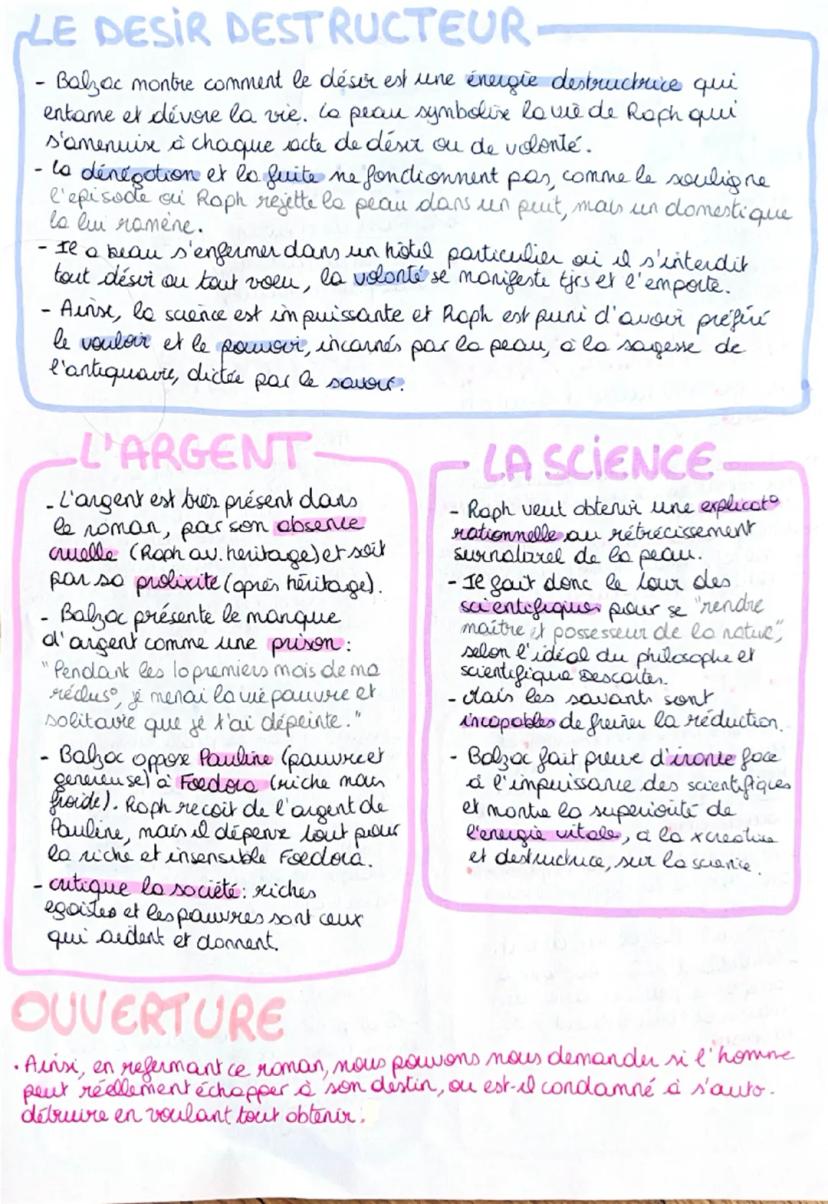 LE DESIR DESTRUCTEUR
- Balzac montre comment le désir est une énergie destructrice qui
entame et dévore la vie. La peau symbolise la vie de Raph qui
s'amenuise à chaque acte de désir ou de volonté.
- La dénégation et la fuite ne fonctionnent pas, comme le souligne
l'episode où Raph rejette la peau dans un puit, mais un domestique
la lui ramène.
- Il a beau s'enfermer dans un hôtel particulier où il s'interdit
tout désir ou tout voeu, la volonté se manifeste tjrs et l'emporte.
- Ainsi, la science est impuissante et Raph est puni d'avoir préféré
le vouloir et le pouvoir, incarnés par la peau, à la sagesse de
l'antiquaire, dictée par le savoir.
L'ARGENT
- L'argent est très présent dans
le roman, par son absence
cruelle (Raph av. heritage) et soit
par sa prolixité (après héritage).
- Balzac présente le manque
d'argent comme une prison :
"Pendant les 10 premiers mois de ma
réclus°, je menai la vie pauvre et
solitaire que je t'ai dépeinte."
- Balzac oppose Pauline (pauvre et
genereuse) à Foedora (riche mais
froide). Raph recoit de l'argent de
Pauline, mais il dépense tout pour
la riche et insensible Foedora.
- critique la société : riches
egoistes et les pauvres sont ceux
qui aident et donnent.
LA SCIENCE
- Raph veut obtenir une explicat°
rationnelle au rétrécissement
surnaturel de la peau.
- Il fait donc le tour des
scientifiques pour se "rendre
maître et possesseur de la nature",
selon l'idéal du philosophe et
scientifique Descartes.
- Mais les savants sont
incapables de freiner la réduction.
- Balzac fait preuve d'ironie face
à l'impuissance des scientifiques
et montre la superiorité de
l'energie vitale, à la x creatrice
et destructrice, sur la science.
OUVERTURE
• Ainsi, en refermant ce roman, nous pouvons nous demander si l'homme
peut réellement échapper à son destin, ou est-il condamné à s'auto-
détruire en voulant tout obtenir.